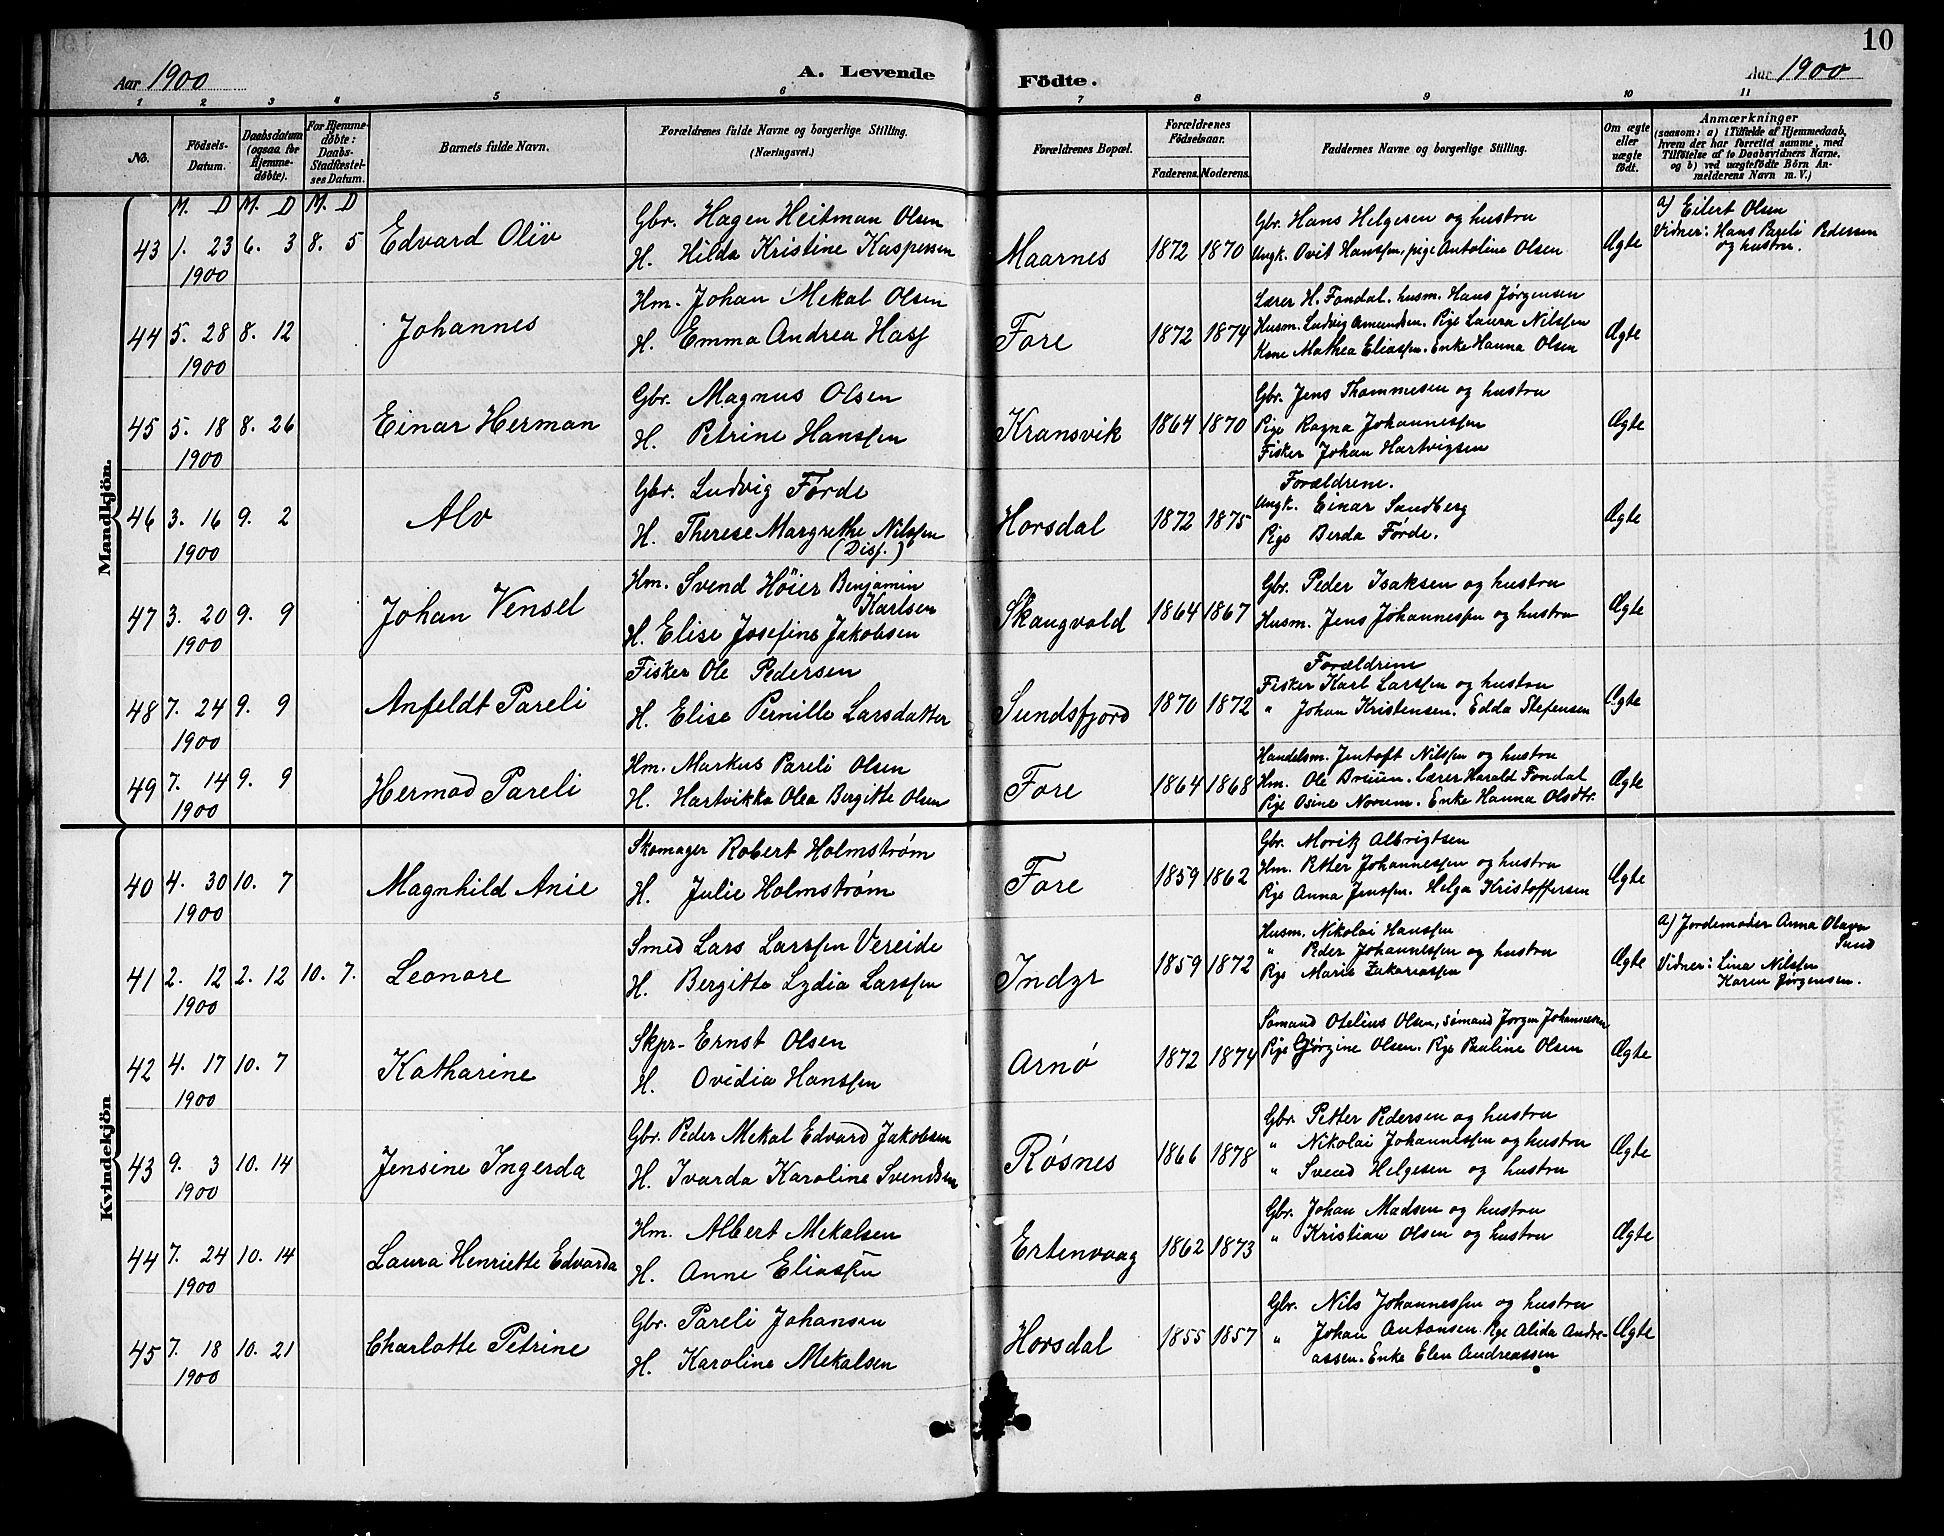 10
Aar 1900 A. Levende Födte. Aar 1900
1 2 3 4 5 6 7 8 9 10 11
No. Födsels-Datum. Daabsdatum (ogsaa for Hjemme-döbte). For Hjemme-döbte: Daabs-Stadfæstel-ses Datum. Barnets fulde Navn. Forældrenes fulde Navne og borgerlige Stilling. (Næringsvei.) Forældrenes Bopæl. Forældrenes Födselsaar. Faderens. Moderens. Faddernes Navne og borgerlige Stilling. Om ægte eller uægte födt. Anmærkninger (saasom: a) i Tilfælde af Hjemmedaab, hvem der har forrettet samme, med Tilföielse af to Daabsvidners Navne, og b) ved uægtefödte Börn Anmelderens Navn m. V.)
Mandkjön.
M. D M. D M. D
43 1. 23 6. 3 8. 5 Edvard Oliv Gbr. Hagen Heitman Olsen
1900 H. Hilda Kristine Kaspersen
Maarnes 1872 1870 Gbr. Hans Helgesen og hustru
Ungk. Ovit Hanssen, pige Antoline Olsen Ægte
a) Eilert Olsen
Vidner: Hans Pareli Pedersen
og hustru.
44 5. 28 8. 12 Johannes Hm. Johan Mekal Olsen
1900 H. Emma Andrea Hasf
Fore 1872 1874 Lærer H. Fondal. husm. Hans Jørgensen
Husm. Ludvig Amundsen. Pige Laura Nilssen
Kone Mathea Eliassen. Enke Hanna Olsen Ægte
45 5. 18 8. 26 Einar Herman Gbr. Magnus Olsen
1900 H. Petrine Hanssen
Kransvik 1864 1870 Gbr. Jens Thommesen og hustru
Pige Ragna Johannessen
Fisker Johan Hartvigsen Ægte
46 3. 16 9. 2 Alv Gbr. Ludvig Førde
1900 H. Therese Margrethe Nilssen
(Diss.)
Horsdal 1872 1875 Forældrene.
Ungk. Einar Sandberg
Pige Berda Førde. Ægte
47 3. 20 9. 9 Johan Vensel Hm. Svend Höier Benjamin
Karlsen
1900 H. Elise Josefine Jakobsen
Skaugvold 1864 1867 Gbr. Peder Isaksen og hustru
Husm. Jens Johannessen og hustru Ægte
48 7. 24 9. 9 Anfeldt Pareli Fisker Ole Pedersen
1900 H. Elise Pernille Larsdatter
Sundsfjord 1870 1872 Forældrene
Fisker Karl Larssen og hustru
" Johan Kristensen. Edda Stefensen Ægte
49 7. 14 9. 9 Hermod Pareli Hm. Markus Pareli Olsen
1900 H. Hartvikka Olea Bergitte Olsen
Fore 1864 1868 Handelsm. Jentoft Nilssen og hustru
Hm. Ole Bruun. Lærer Harald Fondal
Pige Osine Norum. Enke Hanna Olsdtr. Ægte
Kvindekjön
40 4. 30 10. 7 Magnhild Anie Skomager Robert Holmstrøm
1900 H. Julie Holmstrøm
Fore 1859 1862 Gbr. Moritz Albrigtsen
Hm. Petter Johannessen og hustru
Pige Anna Jenssen. Helga Kristoffersen Ægte
41 2. 12 2. 12 10. 7. Leonore Smed Lars Larssen Vereide
1900 H. Bergitte Lydia Larssen
Indyr 1859 1872 Husm. Nikolai Hanssen
" Peder Johannessen og hustru
Pige Marie Zakariassen Ægte
a) Jordemoder Anna Olava
Sund
Vidner: Lina Nilssen
Karen Jørgensen.
42 4. 17 10. 7 Katharine Skpr. Ernst Olsen
1900 H. Ovidia Hanssen
Arnø 1872 1874 Sømand Otelius Olsen, sømand Jørgen Johannesen
Pige Gjørgine Olsen. Pige Pauline Olsen Ægte
43 9. 3 10. 14 Jensine Ingerda Gbr. Peder Mekal Edvard Jakobsen
1900 H. Ivarda Karoline Svendsen
Røsnes 1866 1878 Gbr. Petter Pedersen og hustru
" Nikolai Johannessen og hustru
" Svend Helgesen og hustru Ægte
44 7. 24 10. 14 Laura Henriette Edvarda Hm. Albert Mekalsen
1900 H. Anne Eliassen
Ertenvaag 1862 1873 Gbr. Johan Madsen og hustru
" Kristian Olsen og hustru Ægte
45 7. 18 10. 21 Charlotte Petrine Gbr. Pareli Johansen
1900 H. Karoline Mekalsen
Horsdal 1855 1857 Gbr. Nils Johannessen og hustru
" Johan Antonsen. Pige Alida Andre-
assen. Enke Elen Andreassen Ægte